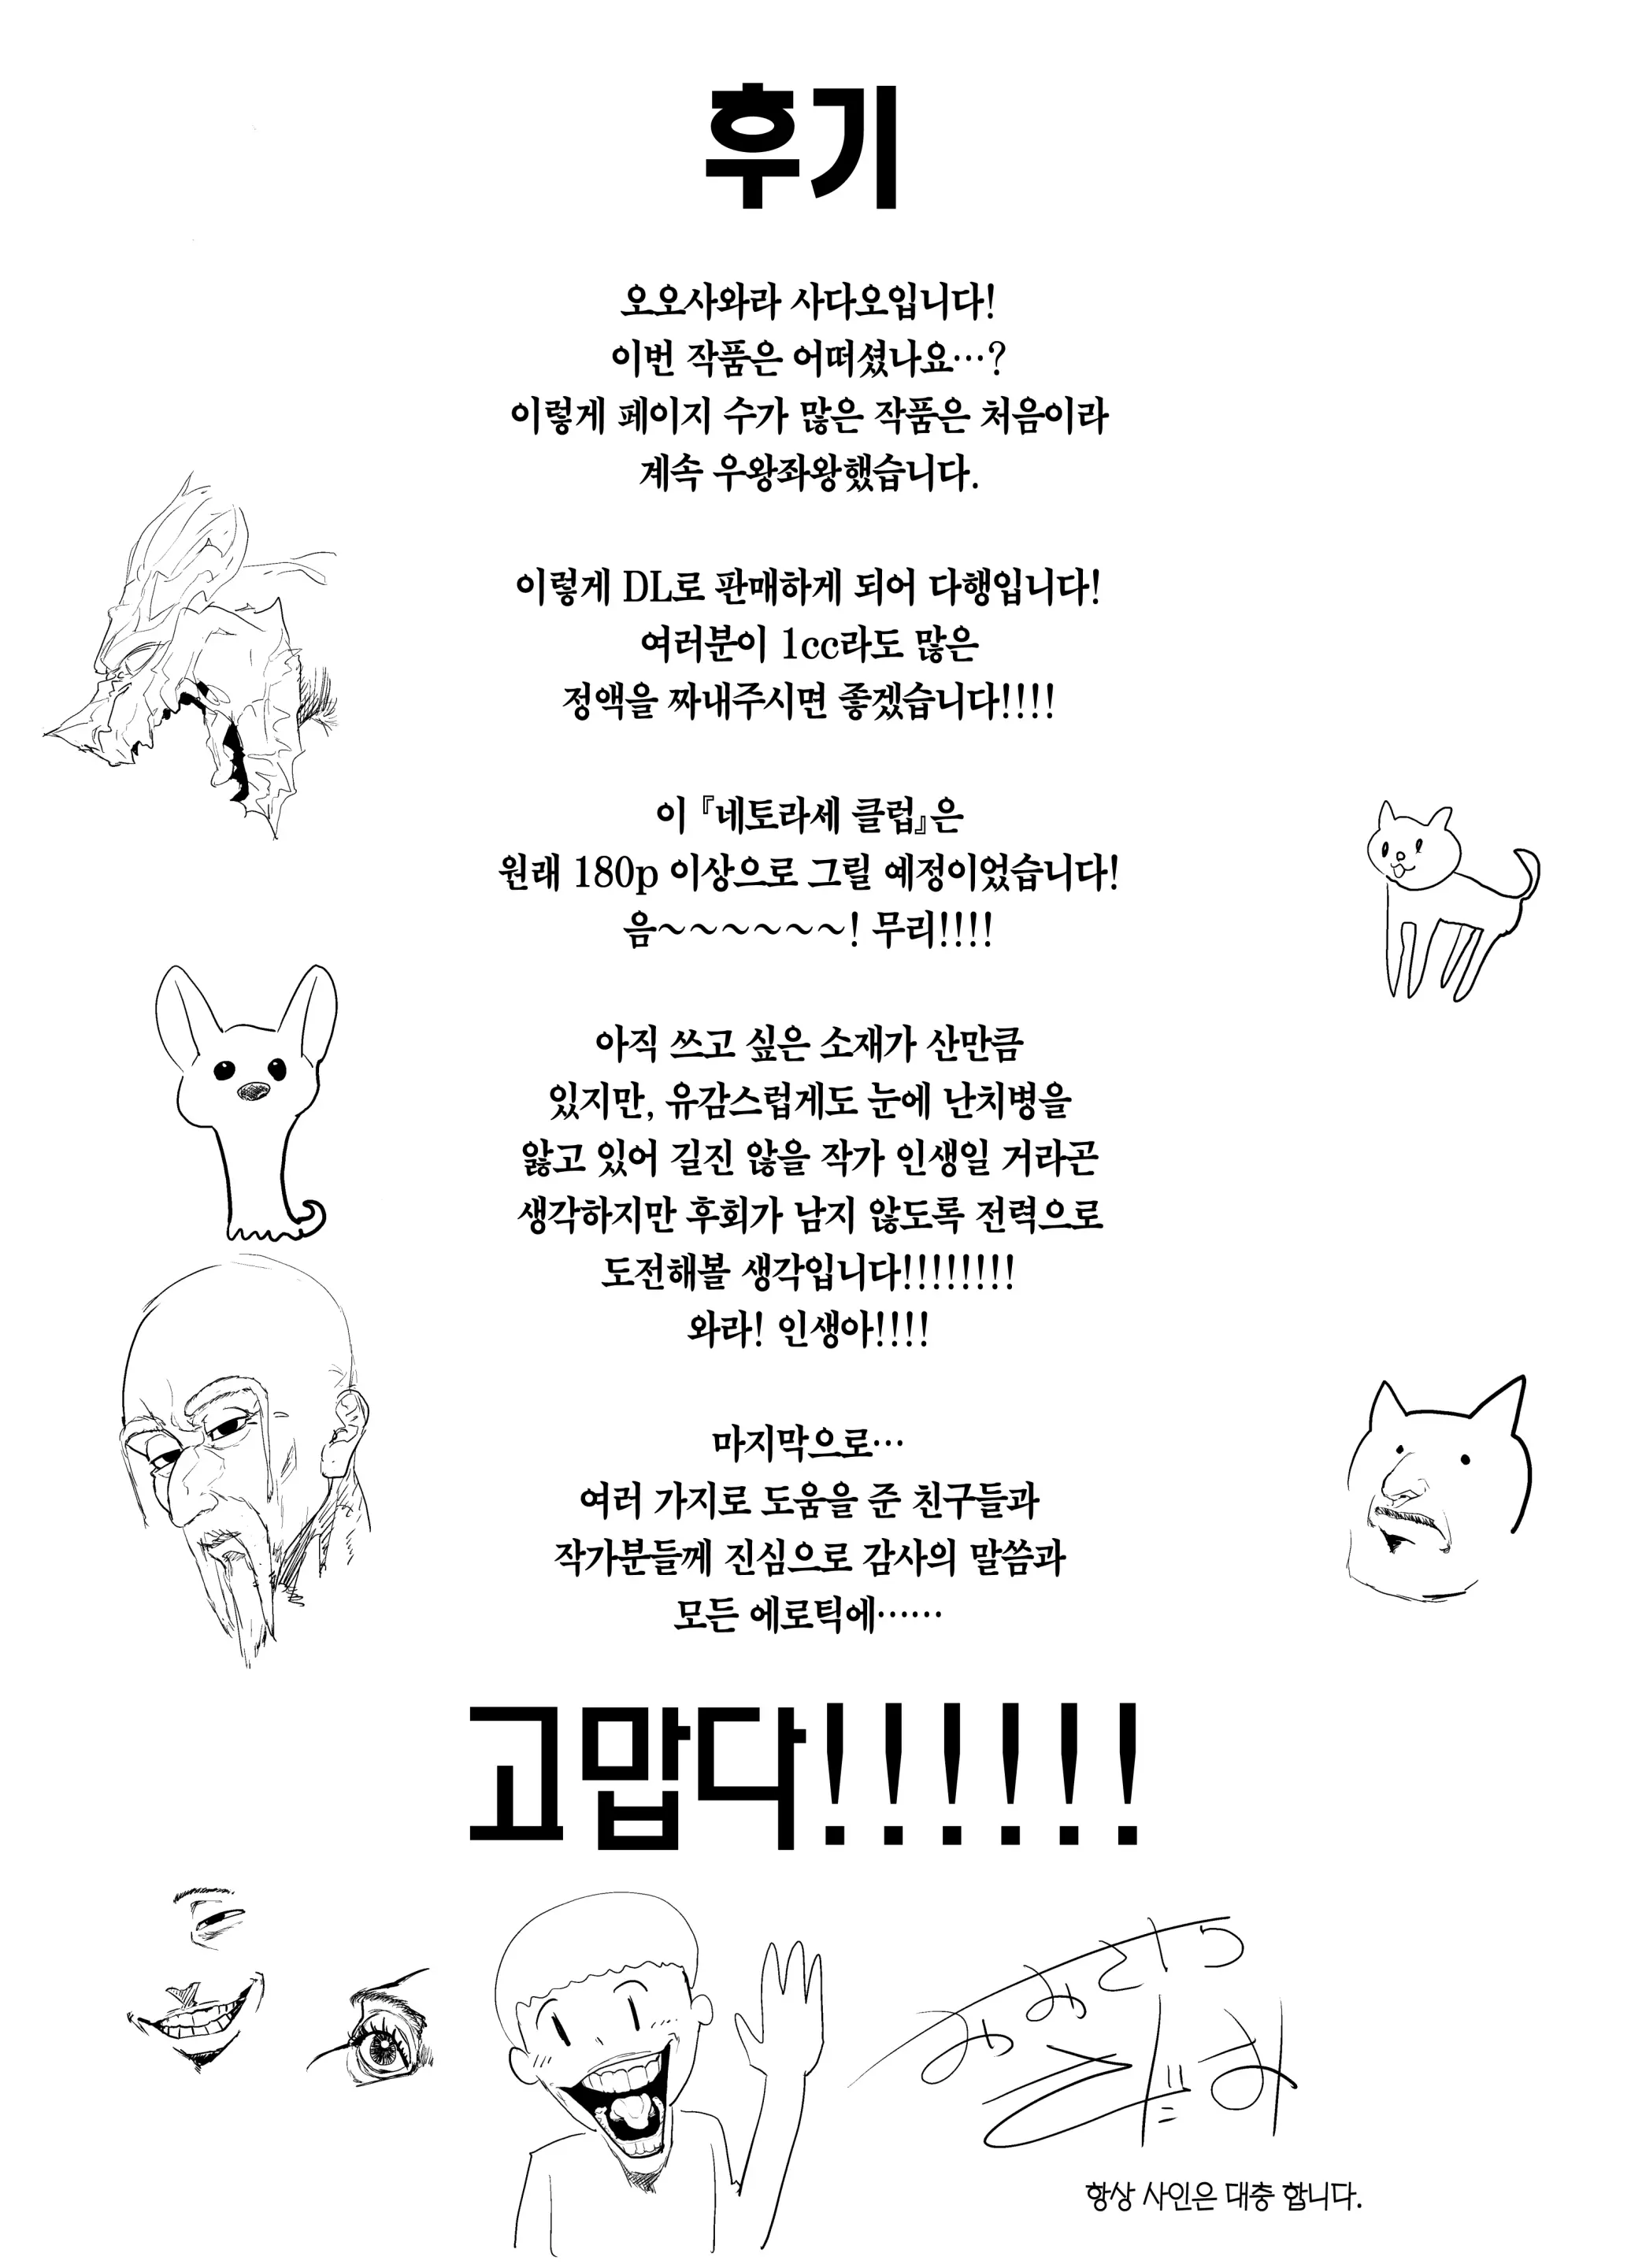 후기
오오사와라 사다오입니다!
이번 작품은 어떠셨나요…?
이렇게 페이지 수가 많은 작품은 처음이라
계속 우왕좌왕했습니다.
이렇게 DL로 판매하게 되어 다행입니다!
여러분이 1cc라도 많은
정액을 짜내주시면 좋겠습니다!!!!
이『네토라세 클럽』은
원래 180p 이상으로 그릴 예정이었습니다!
음~~~~~~! 무리!!!!
아직 쓰고 싶은 소재가 산만큼
있지만, 유감스럽게도 눈에 난치병을
앓고 있어 길진 않을 작가 인생일 거라곤
생각하지만 후회가 남지 않도록 전력으로
도전해볼 생각입니다!!!!!!!!
와라! 인생아!!!!
마지막으로…
여러 가지로 도움을 준 친구들과
작가분들께 진심으로 감사의 말씀과
모든 에로틱에……
고맙다!!!!!!
항상 사인은 대충 합니다.